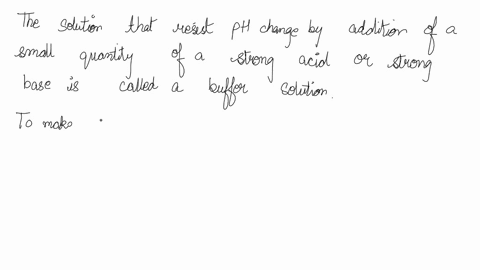 The solution that resist pH change by addition of a
small quantity of a strong acid or strong
base is called a buffer solution.
To make